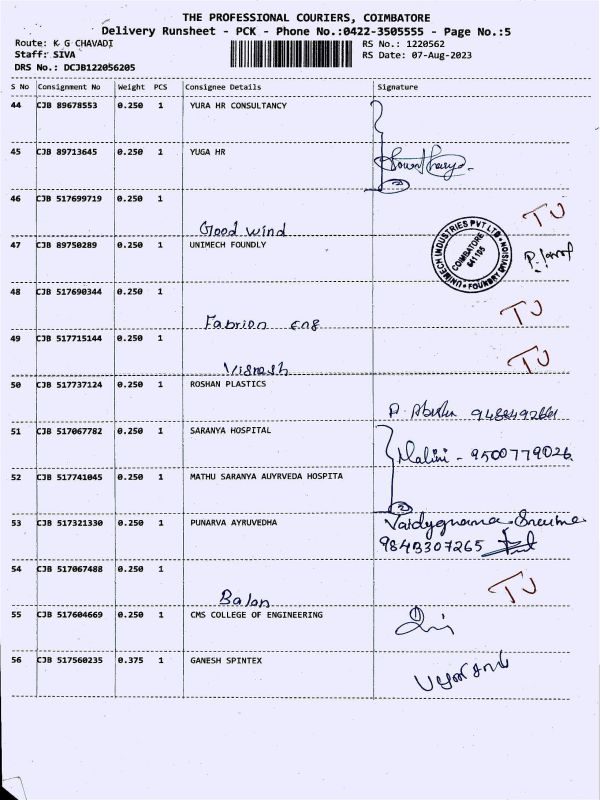 THE PROFESSIONAL COURIERS, COIMBATORE
Delivery Runsheet - PCK - Phone No.:0422-3505555 - Page No.:5
Route: K G CHAVADI RS No.: 1220562
Staff: SIVA RS Date: 07-Aug-2023
DRS No.: DCJB122056205
S No Consignment No Weight PCS Consignee Details Signature
44 CJB 89678553 0.250 1 YURA HR CONSULTANCY
45 CJB 89713645 0.250 1 YUGA HR
2
46 CJB 517699719 0.250 1
Good wind TJ
47 CJB 89750289 0.250 1 UNIMECH FOUNDLY
UNIMECH INDUSTRIES PVT LTD FOUNDRY DIVISION COIMBATORE 641105
48 CJB 517690344 0.250 1
Fabrion eng TJ
49 CJB 517715144 0.250 1
TJ
50 CJB 517737124 0.250 1 ROSHAN PLASTICS
51 CJB 517067782 0.250 1 SARANYA HOSPITAL
Malini - 9500779026
52 CJB 517741045 0.250 1 MATHU SARANYA AUYRVEDA HOSPITA
2
53 CJB 517321330 0.250 1 PUNARVA AYRUVEDHA
9843307265
54 CJB 517067488 0.250 1
Balan TJ
55 CJB 517604669 0.250 1 CMS COLLEGE OF ENGINEERING
56 CJB 517560235 0.375 1 GANESH SPINTEX